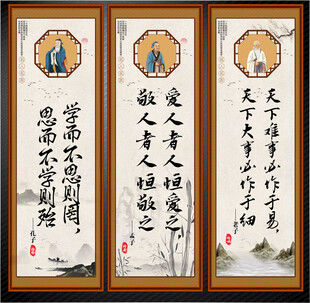 学而不思则罔，
思而不学则殆
—孔子
爱人者人恒爱之，
敬人者人恒敬之
—孟子
天下难事必作于易，
天下大事必作于细
—老子